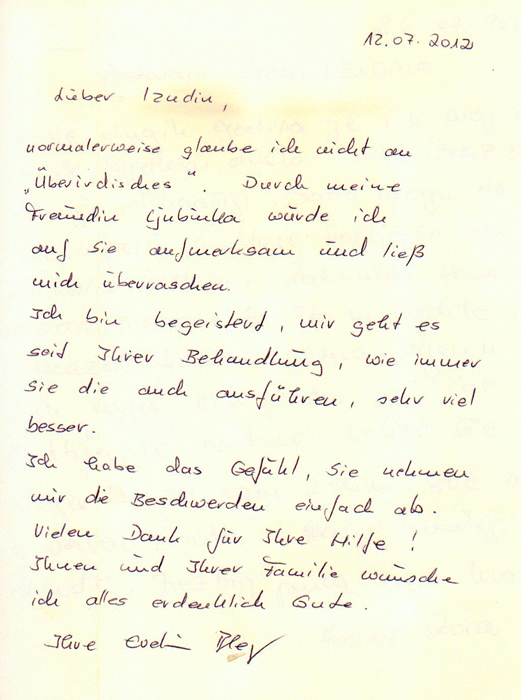 12.07.2012
Lieber Izudin,
normalerweise glaube ich nicht an
„Überirdisches“. Durch meine
Freundin Ljubinka wurde ich
auf Sie aufmerksam und ließ
mich überraschen.
Ich bin begeistert, mir geht es
seit Ihrer Behandlung, wie immer
Sie die auch ausführen, sehr viel
besser.
Ich habe das Gefühl, Sie nehmen
mir die Beschwerden einfach ab.
Vielen Dank für Ihre Hilfe!
Ihnen und Ihrer Familie wünsche
ich alles erdenklich Gute.
Ihre